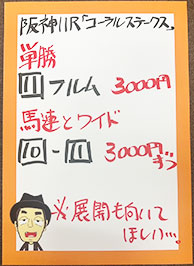 阪神11R「コーラルステークス」
単勝
11 フルム 3000円
馬連とワイド
10-11 3000円ずつ
※展開も向いて
ほしい…。